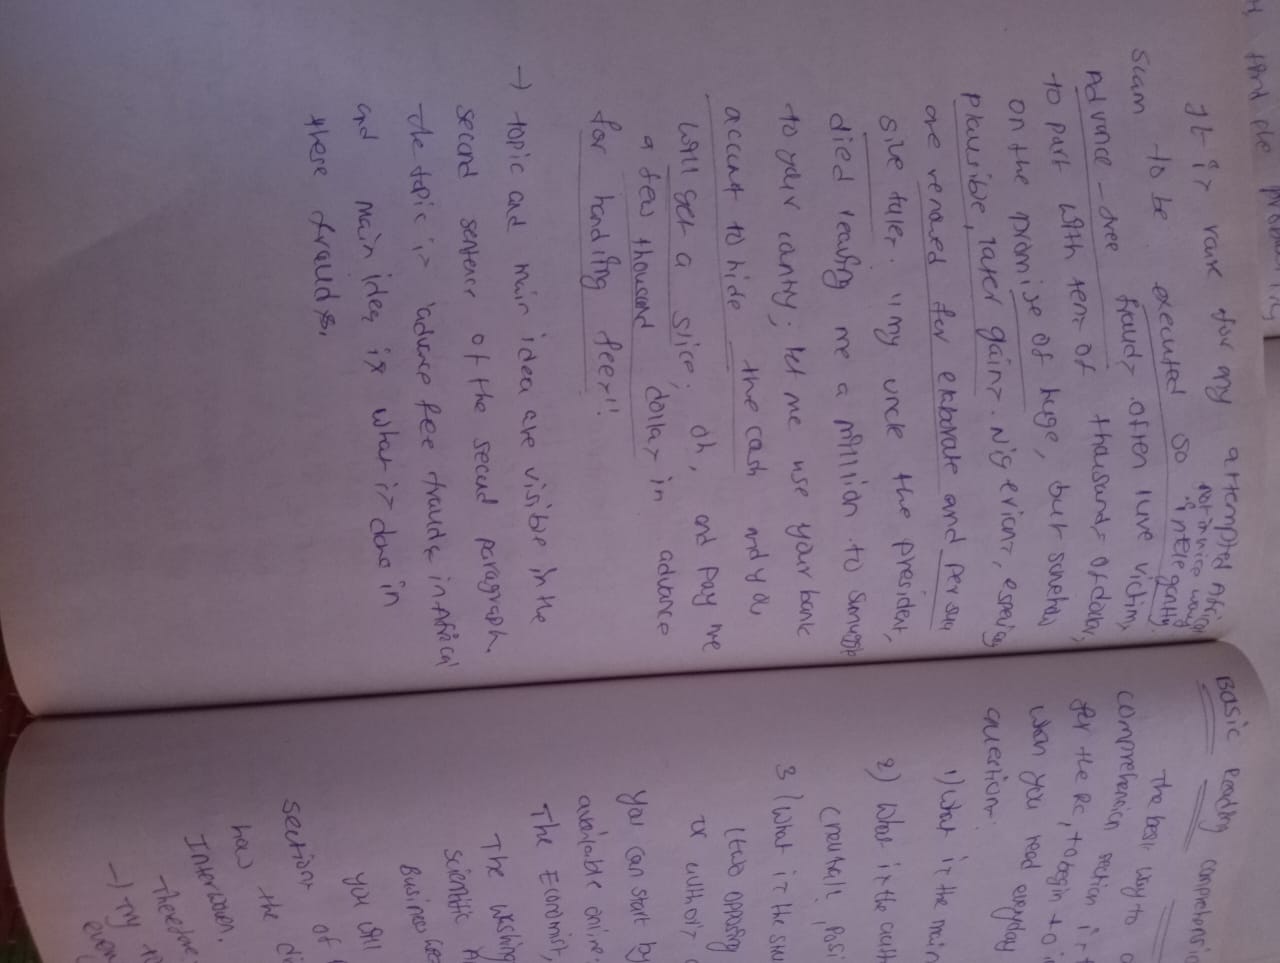 It is rare for any attempted African
not in nice way
scam to be executed so intelegently.
Advance-free fraud often lure victims
to part with tens of thousands of dollars
on the promise of huge, but
plausible, later gains. Nigerians, especially
are renowned for elaborate and
tales. "my uncle the president,
died leaving me a million to smuggle
to your country; let me use your bank
account to hide the cash and you
will get a slice; oh, and pay me
a few thousand dollars in advance
for handling fees"!
→ topic and main idea are visible in the
second sentence of the second paragraph.
the topic is 'advance fee frauds in Africa'
and main idea is what is done in
these frauds.
and the
Basic Reading
The best way to
comprehension section is
for the RC, to begin to
when you read everyday
questions:
1) What is the main
2) What is the
(neutral,
3) What is the
(two opposing
or authors
You can start by
available online.
The Economist,
The
Scientific
Business
You will
sections of
how the
Interwoven.
Therefore
→ Try to